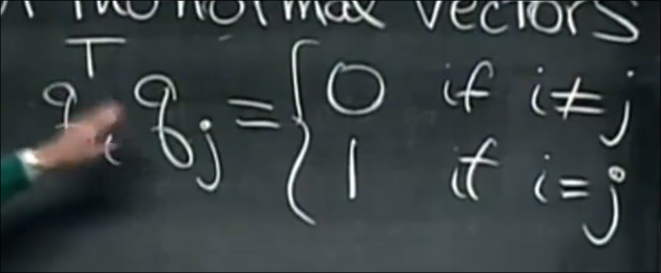 orthonormal vectors
qᵢᵀ qⱼ = { 0 if i ≠ j
1 if i = j